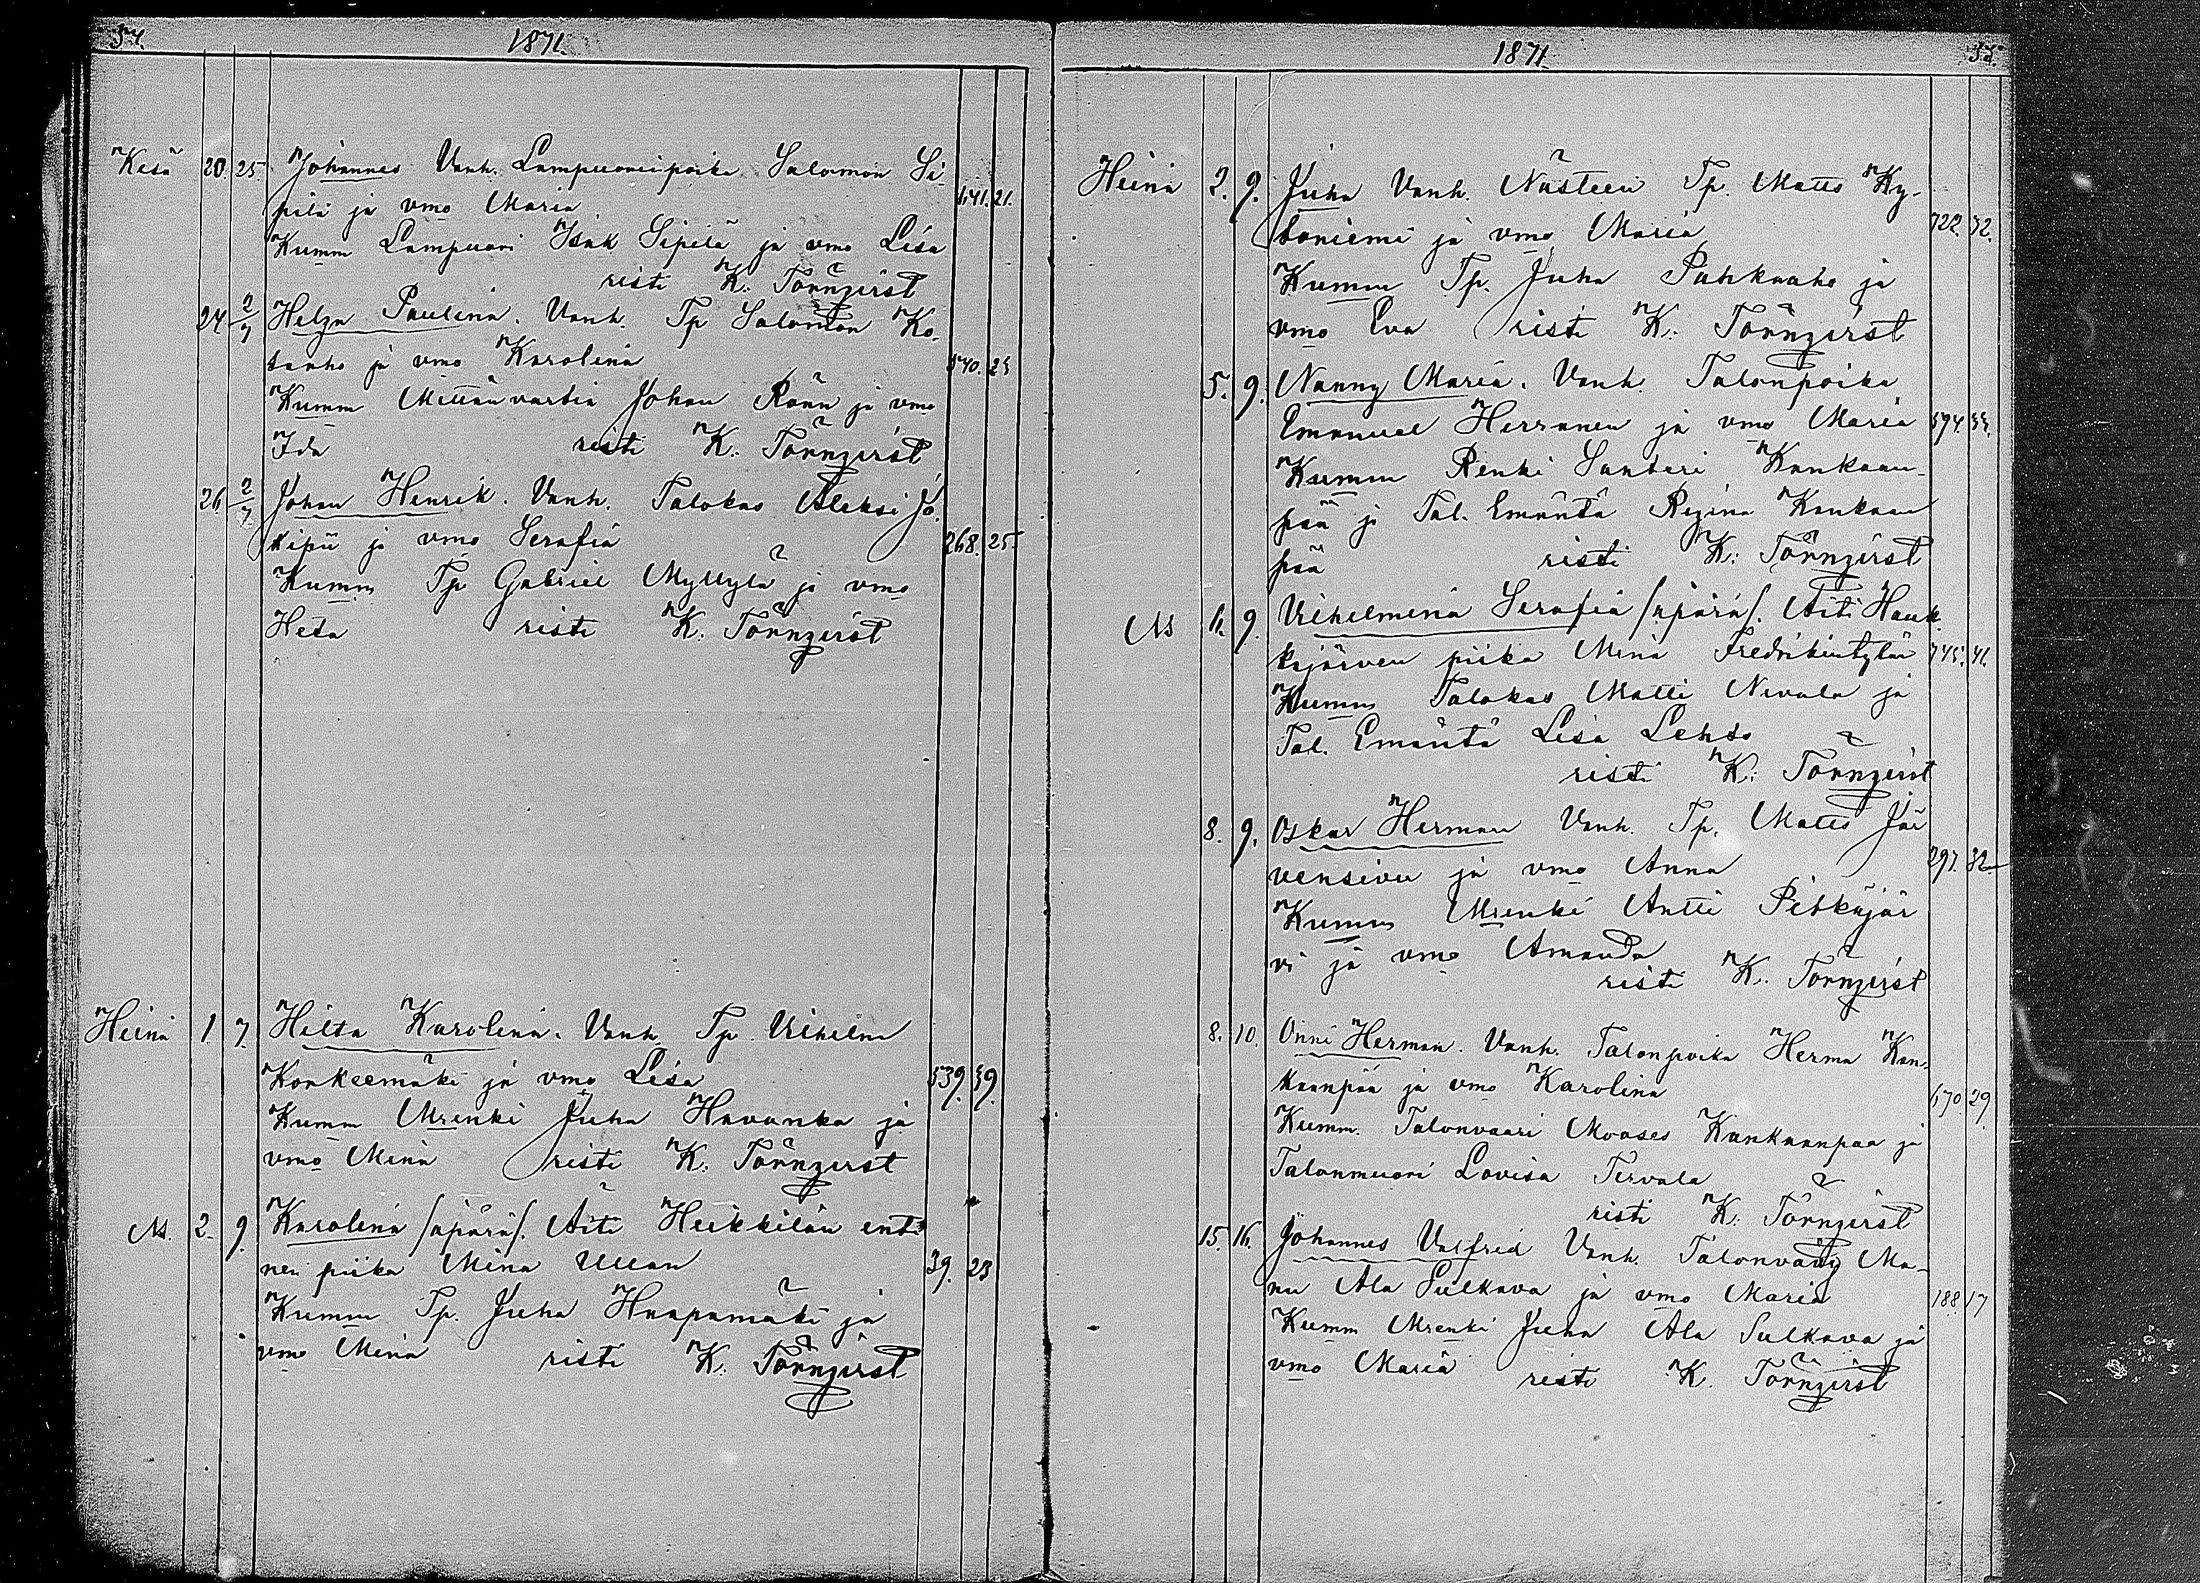 54.
1871.
Kesä 20. 25. Johannes Vanh. Lampuotipoika Salomon Si-
pilä ja vmo Maria 141. 21.
Kumm Lampuori Isak Sipilä ja vmo Lisa
risti K: Törnqvist
24 2/7 Helga Paulina. Vanh. Tp Salomon Ko-
tanho ja vmo Karolina 540. 25
Kumm Mittänvartia Johan Rönn ja vmo
Ida risti K: Törnqvist
26. 2/7 Johan Henrik. Vanh. Talokas Aleksi Jo-
kipii ja vmo Serafia 268. 25.
Kumm Tp Gabriel Myllylä ja vmo
Heta risti K: Törnqvist
Heinä 1 7. Hilta Karolina. Vanh. Tp. Vihelm
Konkeemäki ja vmo Lisa 539. 39.
Kumm Mrenki Juha Havunka ja
vmo Mina risti K: Törnqvist
Ns. 2. 9. Karolina /äpärä/. Äiti Heikkilän enti
nen piika Mina Ullan 39. 23
Kumm Tp. Juha Haapamäki ja
vmo Mina risti K: Törnqvist
1871.
55.
Heinä 2. 9. Juha Vanh. Nästeen Tp. Matts Ky-
töniemi ja vmo Maria 722. 32.
Kumm Tp. Juha Pahkaaho ja
vmo Eva risti K: Törnqvist
5. 9. Nanny Maria. Vanh. Talonpoika
Emanuel Herranen ja vmo Maria 594. 33.
Kumm Renki Santeri Kankaan-
pää ja Tal. Emäntä Regina Kankaan
pää risti K: Törnqvist
Ns 6. 9. Vihelmina Serafia /äpärä/. Äiti Hauk
kajärven piika Mina Fredrikintytär 745. 41.
Kumm Talokas Matti Nevala ja
Tal. Emäntä Lisa Lehto
risti K: Törnqvist
8. 9. Oskar Herman Vanh. Tp. Matts Jär
vensivu ja vmo Anna 297. 32
Kumm Mrenki Antti Pitkäjär
vi ja vmo Amanda
risti K: Törnqvist
8. 10. Onni Herman. Vanh. Talonpoika Herma Kan-
kaanpää ja vmo Karolina 570. 29.
Kumm. Talonvaari Moases Kankaanpää ja
Talonmuori Lovisa Tervala
risti K: Törnqvist
15. 16. Johannes Valfrid Vanh. Talonvävy Ma-
nu Ala Sulkava ja vmo Maria 188. 17
Kumm Mrenki Juha Ala Sulkava ja
vmo Maria risti K. Törnqvist